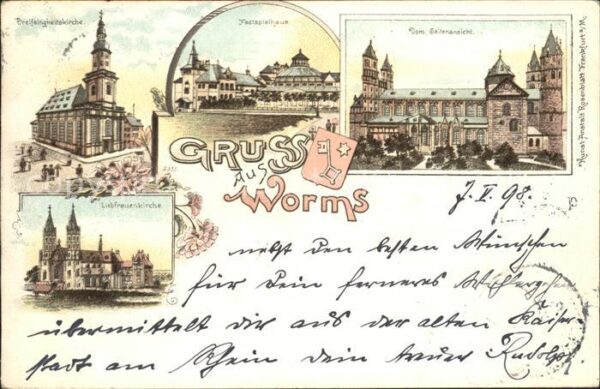 Dreifaltigkeitskirche.
Festspielhaus
Dom, Seitenansicht.
Kunst-Anstalt Rosenblatt Frankfurt a/M.
GRUSS
aus
Worms
Liebfrauenkirche
7. V. 98.
nebst den besten Wünschen
für Dein ferneres
übermittelt dir aus der alten Kaiser-
stadt am Rhein dein treuer Rudolph